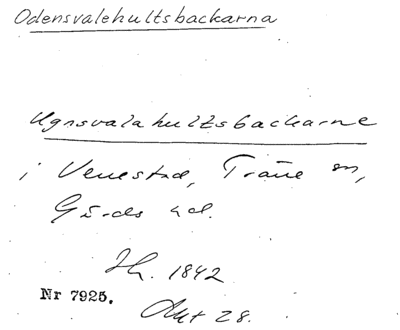 Odensvalehultsbackarna
Ugnsvalahultsbackarne
i Venestad, Träne sn,
Gärds hd.
Ih. 1842
Nr 7925.
Akt 28.